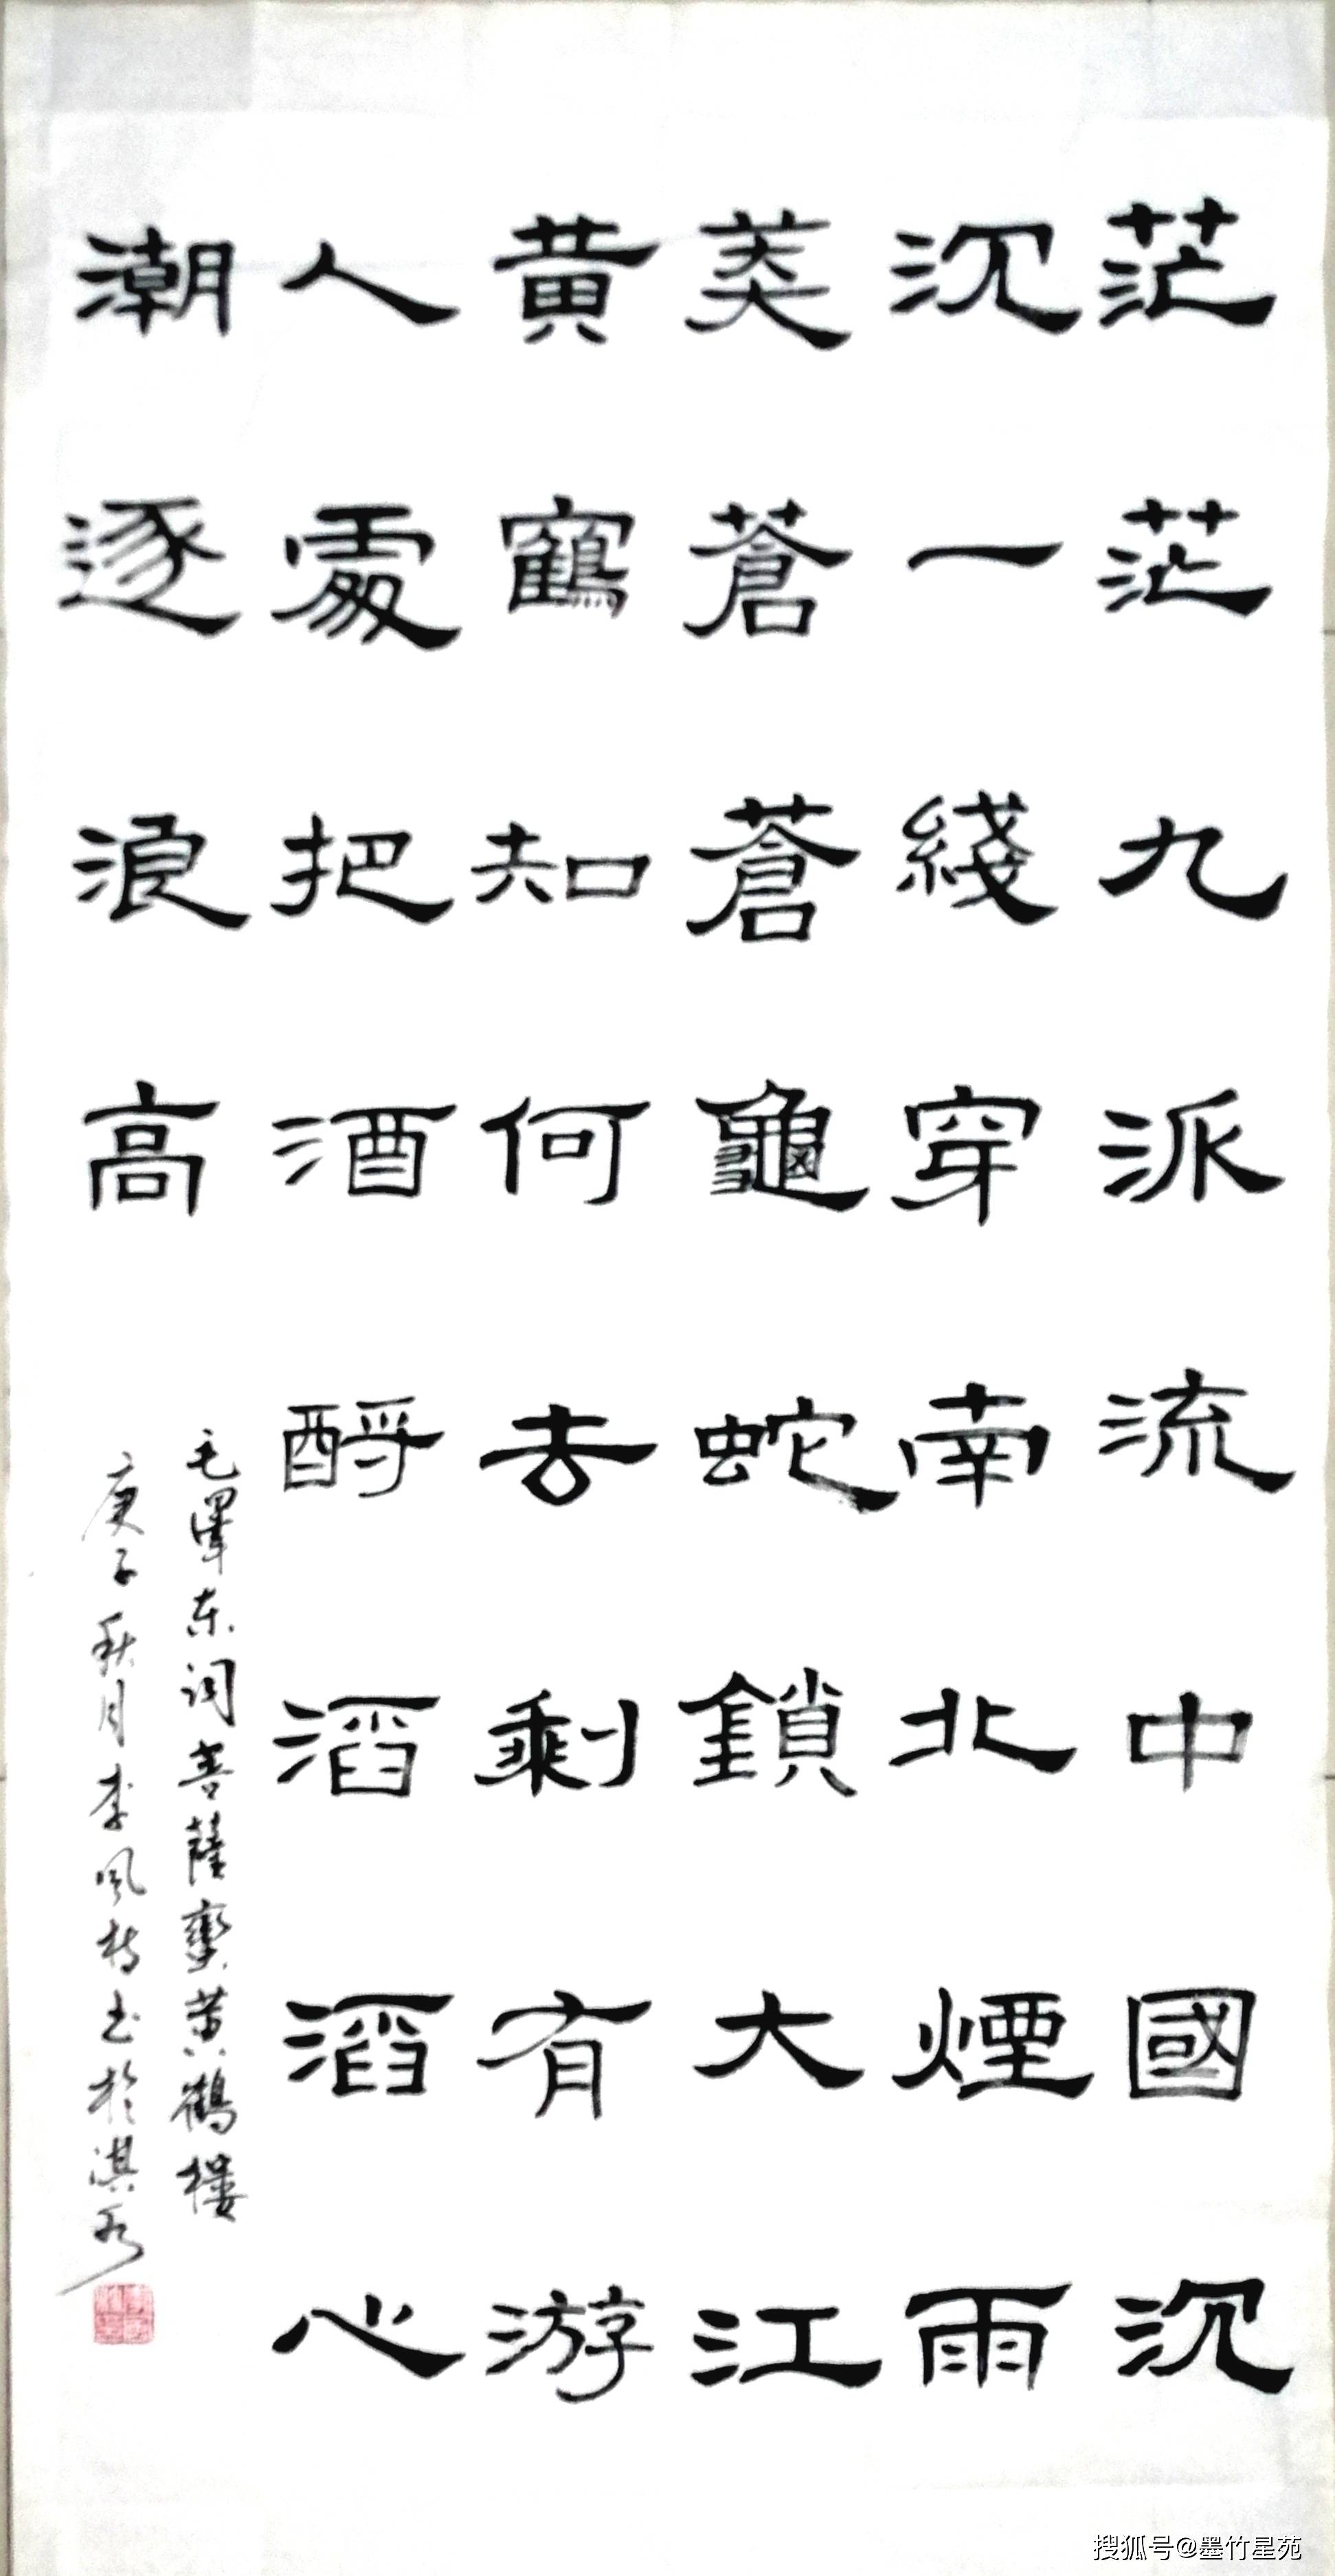 茫茫九派流中國沉
沉一綫穿南北煙雨
莽蒼蒼龜蛇鎖大江
黃鶴知何去剩有游
人處把酒酹滔滔心
潮逐浪高
毛澤东词菩薩蠻黄鶴樓
庚子秋月李風枝书於淇水
搜狐号@墨竹星苑